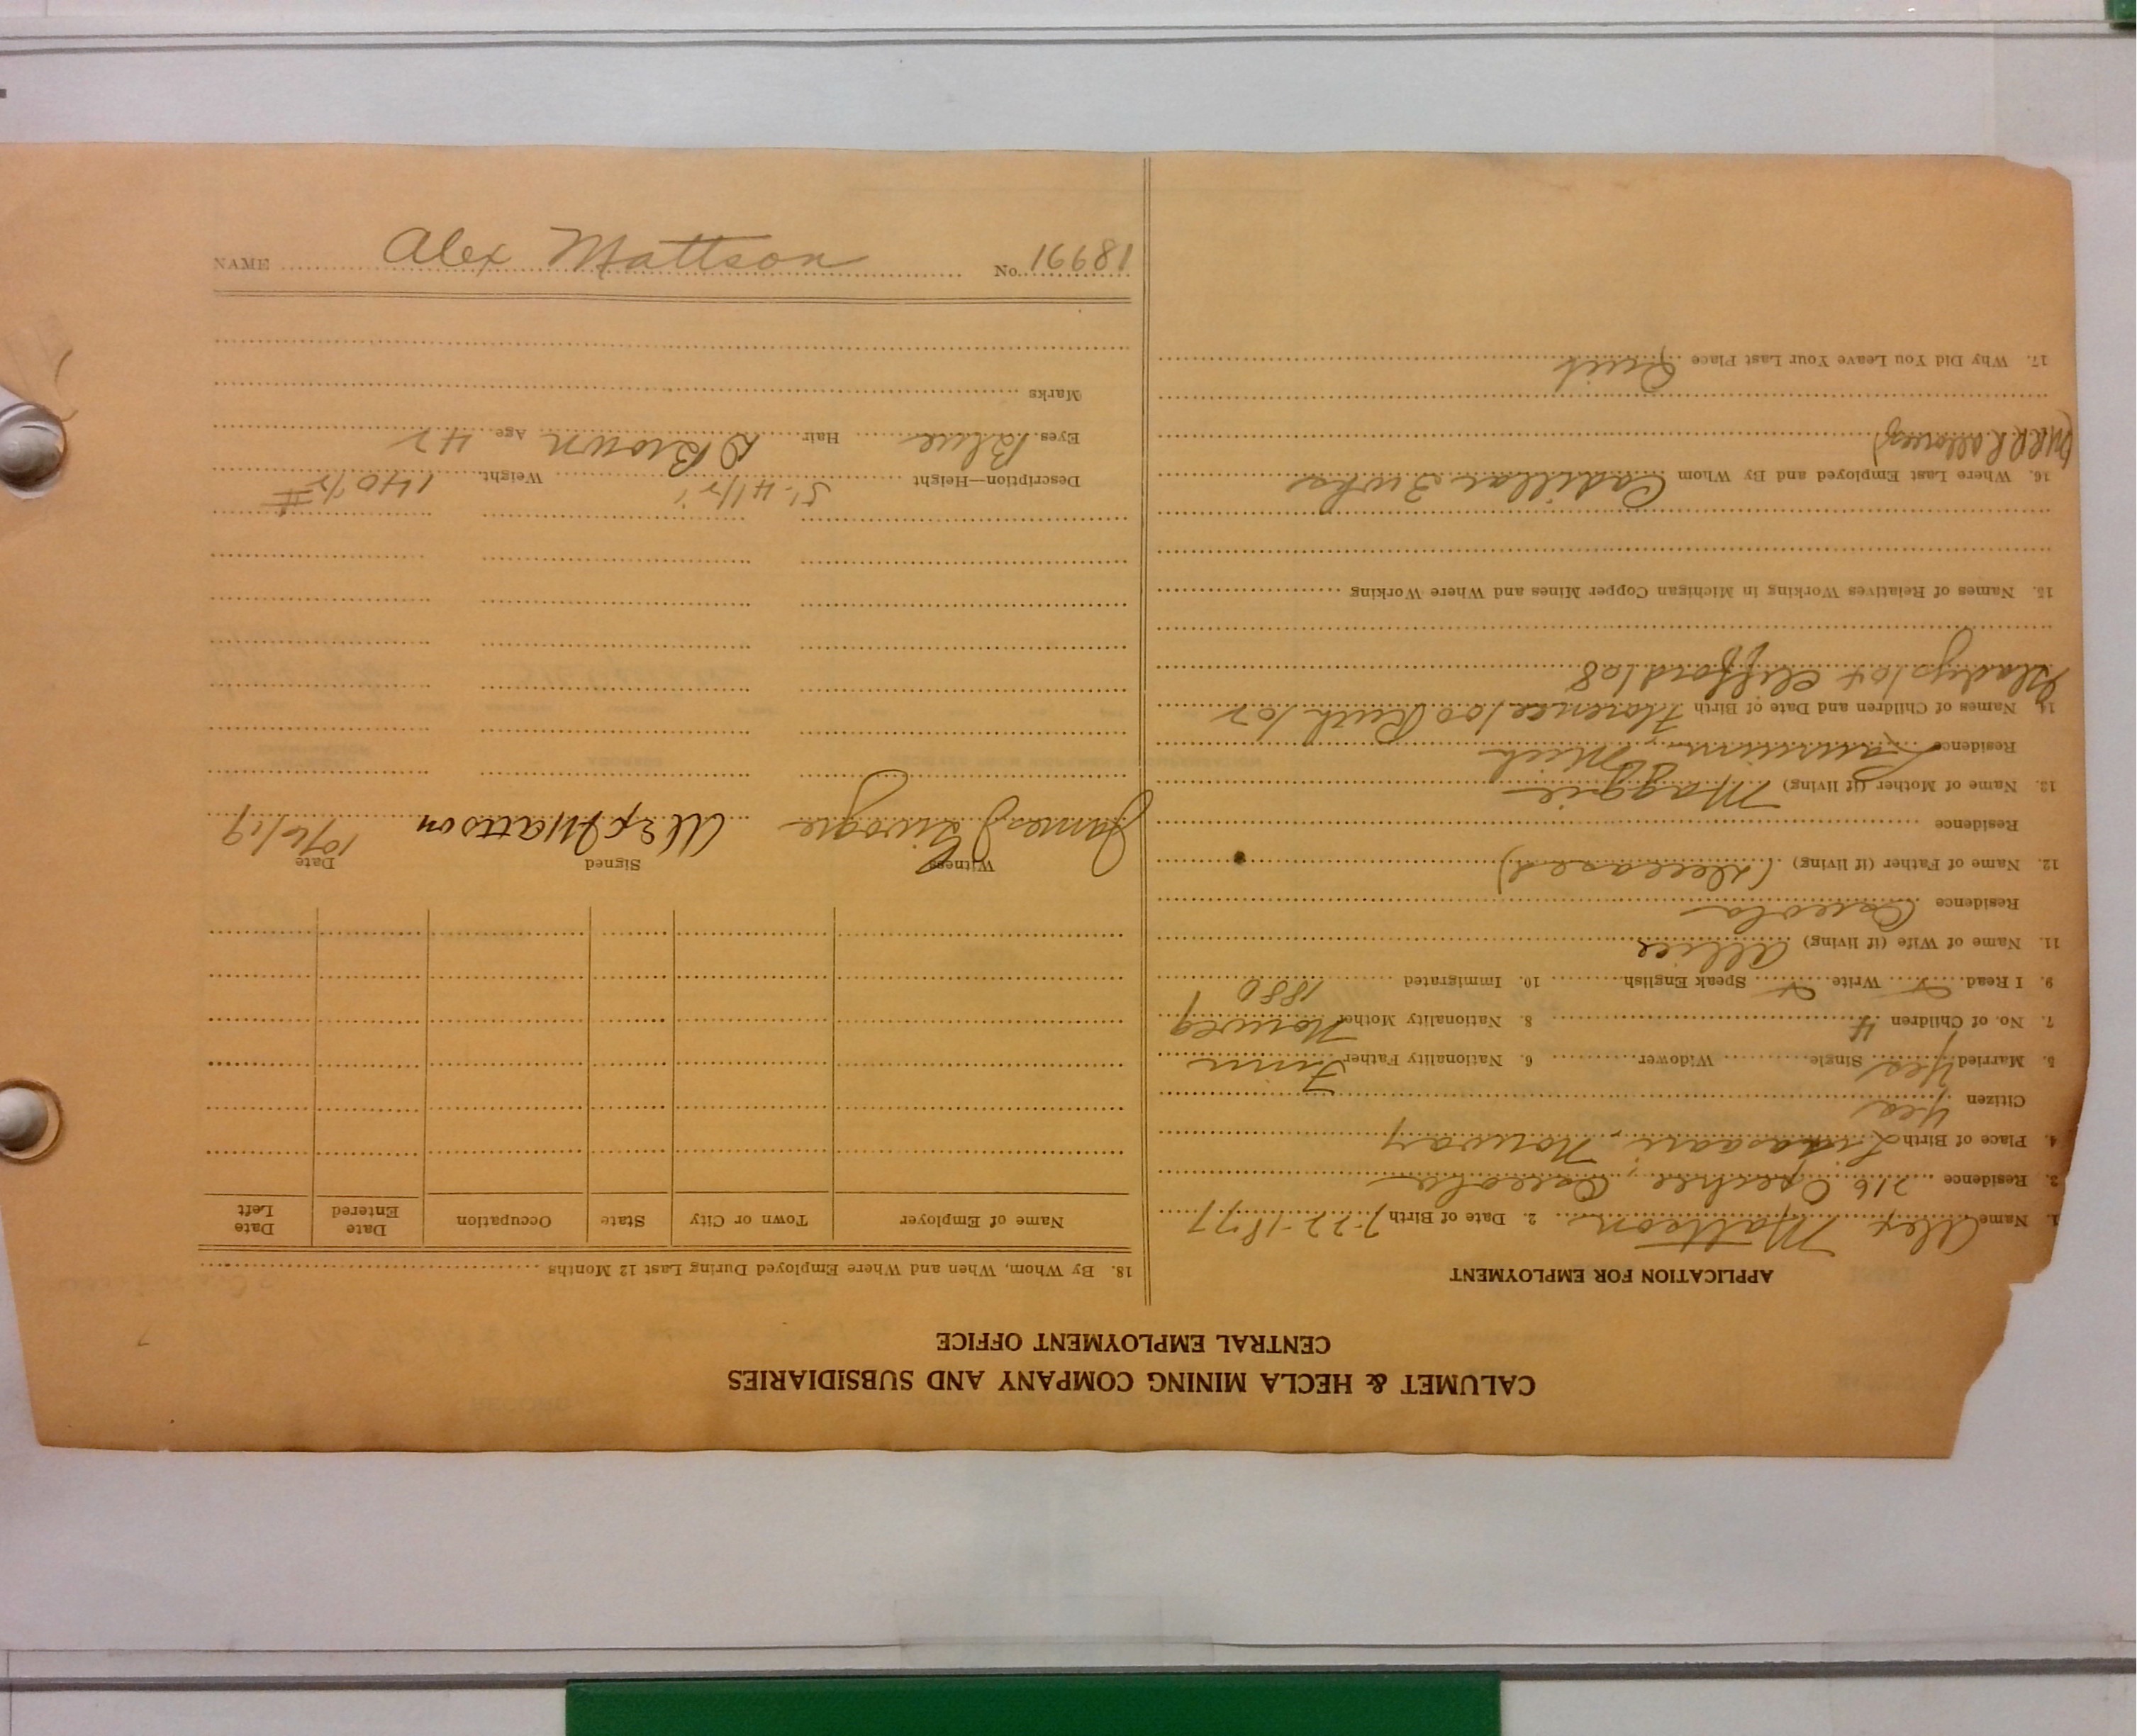 CALUMET & HECLA MINING COMPANY AND SUBSIDIARIES
CENTRAL EMPLOYMENT OFFICE
APPLICATION FOR EMPLOYMENT
1. Name Alex Mattson 2. Date of Birth 7-22-1877
3. Residence 216 Osceola
4. Place of Birth Norway
Citizen Yes
5. Married Yes Single Widower 6. Nationality Father Finn
7. No. of Children 4 8. Nationality Mother Norweg
9. I Read Write Speak English 10. Immigrated 1880
11. Name of Wife (if living) Allice
Residence Osceola
12. Name of Father (if living) (Deceased)
Residence
13. Name of Mother (if living) Maggie
Residence Laurium, Mich
14. Names of Children and Date of Birth Florence 100 Ruth 102
Gladys 104 Clifford 108
15. Names of Relatives Working in Michigan Copper Mines and Where Working
16. Where Last Employed and By Whom Cadillac
17. Why Did You Leave Your Last Place Quit
18. By Whom, When and Where Employed During Last 12 Months
Name of Employer Town or City State Occupation Date Entered Date Left
Witness Signed Date
James Alex Mattson 10/6/19
Description—Height 5'-4 1/2" Weight 140 1/2 #
Eyes Blue Hair D Brown Age 42
Marks
NAME Alex Mattson No. 18991